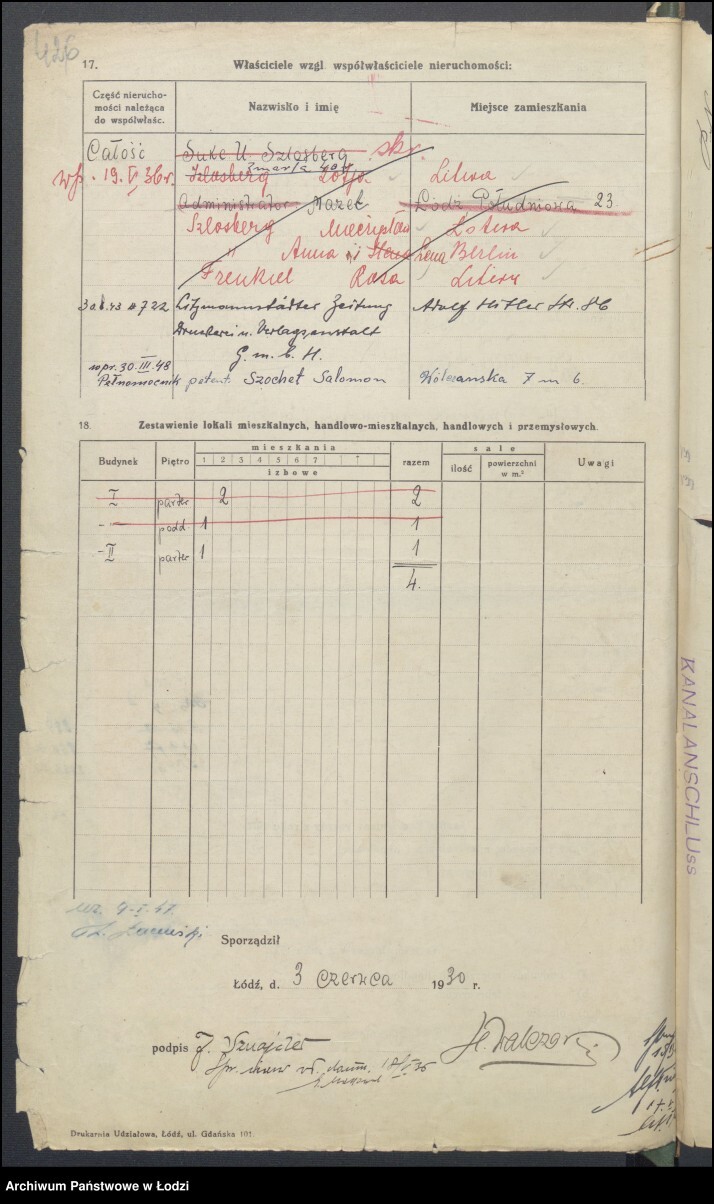 426
17. Właściciele wzgl. współwłaściciele nieruchomości:
Część nierucho-
mości należąca
do współwłaśc.
Nazwisko i imię
Miejsce zamieszkania
Całość Suke U. Szlosberg sk.
zmarła
wp. 19. V 36 r. Szlosberg Litwa
Administrator Mazel Łódź Południowa 23
Szlosberg Mieczysław Łotwa
" Anna i Lena Berlin
Frenkiel Roza Litwa
30.6.43 # 722 Litzmannstädter Zeitung Adolf Hitler Str. 86
Druckerei u. Verlagsanstalt
G. m. b. H.
wpr. 30. III. 48
Pełnomocnik patent. Szochet Salomon Wólczanska 7 m 6.
18. Zestawienie lokali mieszkalnych, handlowo-mieszkalnych, handlowych i przemysłowych.
Budynek Piętro mieszkania razem sale Uwagi
1 2 3 4 5 6 7
izbowe
ilość powierzchni
w m.²
I parter 2 2
- podd. 1 1
- II parter 1 1
4.
KANALANSCHLUSS
Sporządził
Łódź, d. 3 czerwca 1930 r.
podpis J. Sznajder
Drukarnia Udziałowa, Łódź, ul. Gdańska 101.
Archiwum Państwowe w Łodzi